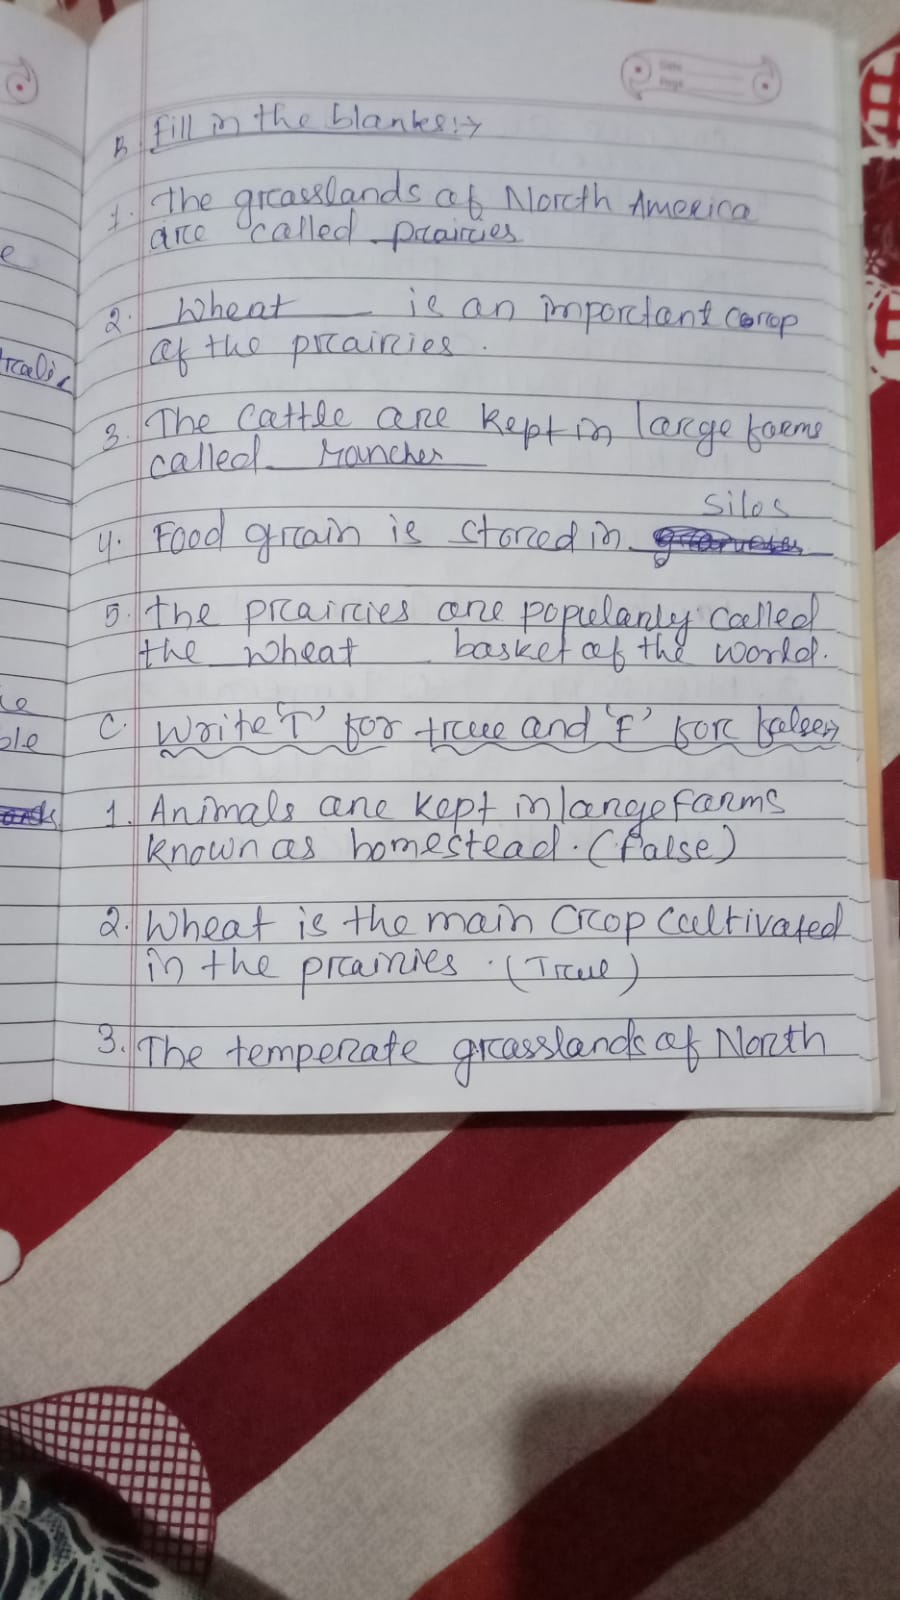 Date
Page
B. Fill in the blanks:→
1. The grasslands of North America
are called prairies
2. Wheat is an important crop
of the prairies.
3. The cattle are kept in large farms
called ranches
silos
4. Food grain is stored in
5. the prairies are popularly called
the wheat basket of the world.
C. Write 'T' for true and 'F' for false→
1. Animals are kept in large farms
known as homestead. (False)
2. Wheat is the main crop cultivated
in the prairies. (True)
3. The temperate grasslands of North
e
ble